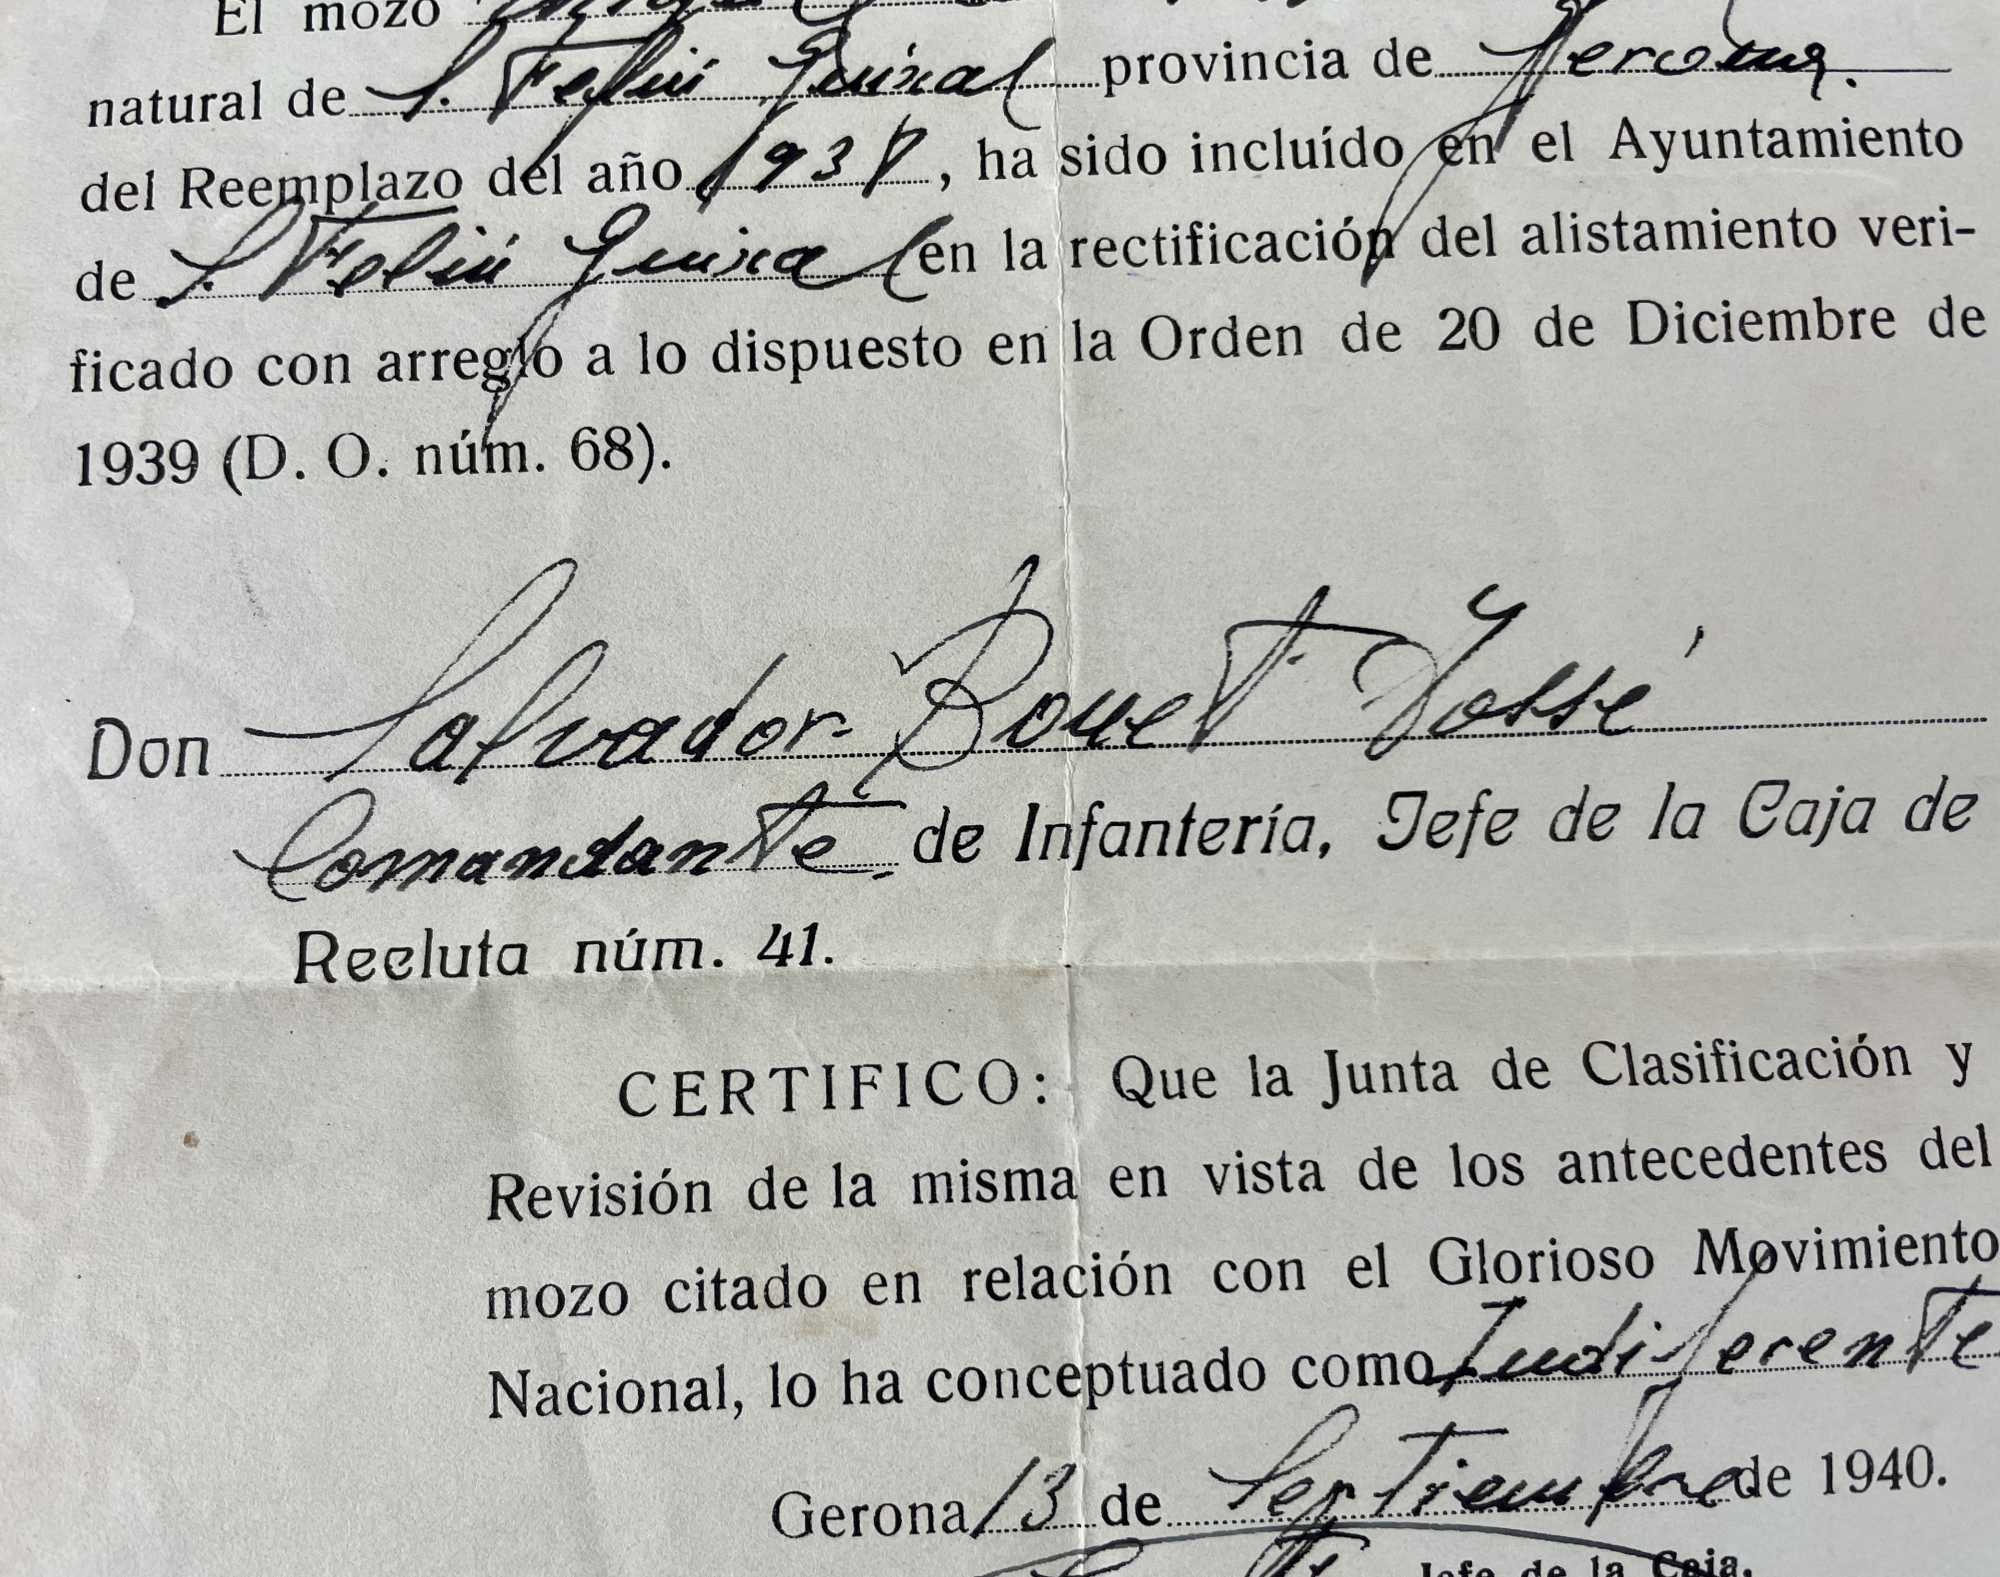 El mozo
natural de S. Feliú Guixal provincia de Gerona.
del Reemplazo del año 1938, ha sido incluído en el Ayuntamiento
de S. Feliú Guixal en la rectificación del alistamiento veri-
ficado con arreglo a lo dispuesto en la Orden de 20 de Diciembre de
1939 (D. O. núm. 68).
Don Salvador Bouet
Comandante, de Infantería, Jefe de la Caja de
Recluta núm. 41.
CERTIFICO: Que la Junta de Clasificación y
Revisión de la misma en vista de los antecedentes del
mozo citado en relación con el Glorioso Movimiento
Nacional, lo ha conceptuado como Indiferente
Gerona 13 de Septiembre de 1940.
Jefe de la Caja,